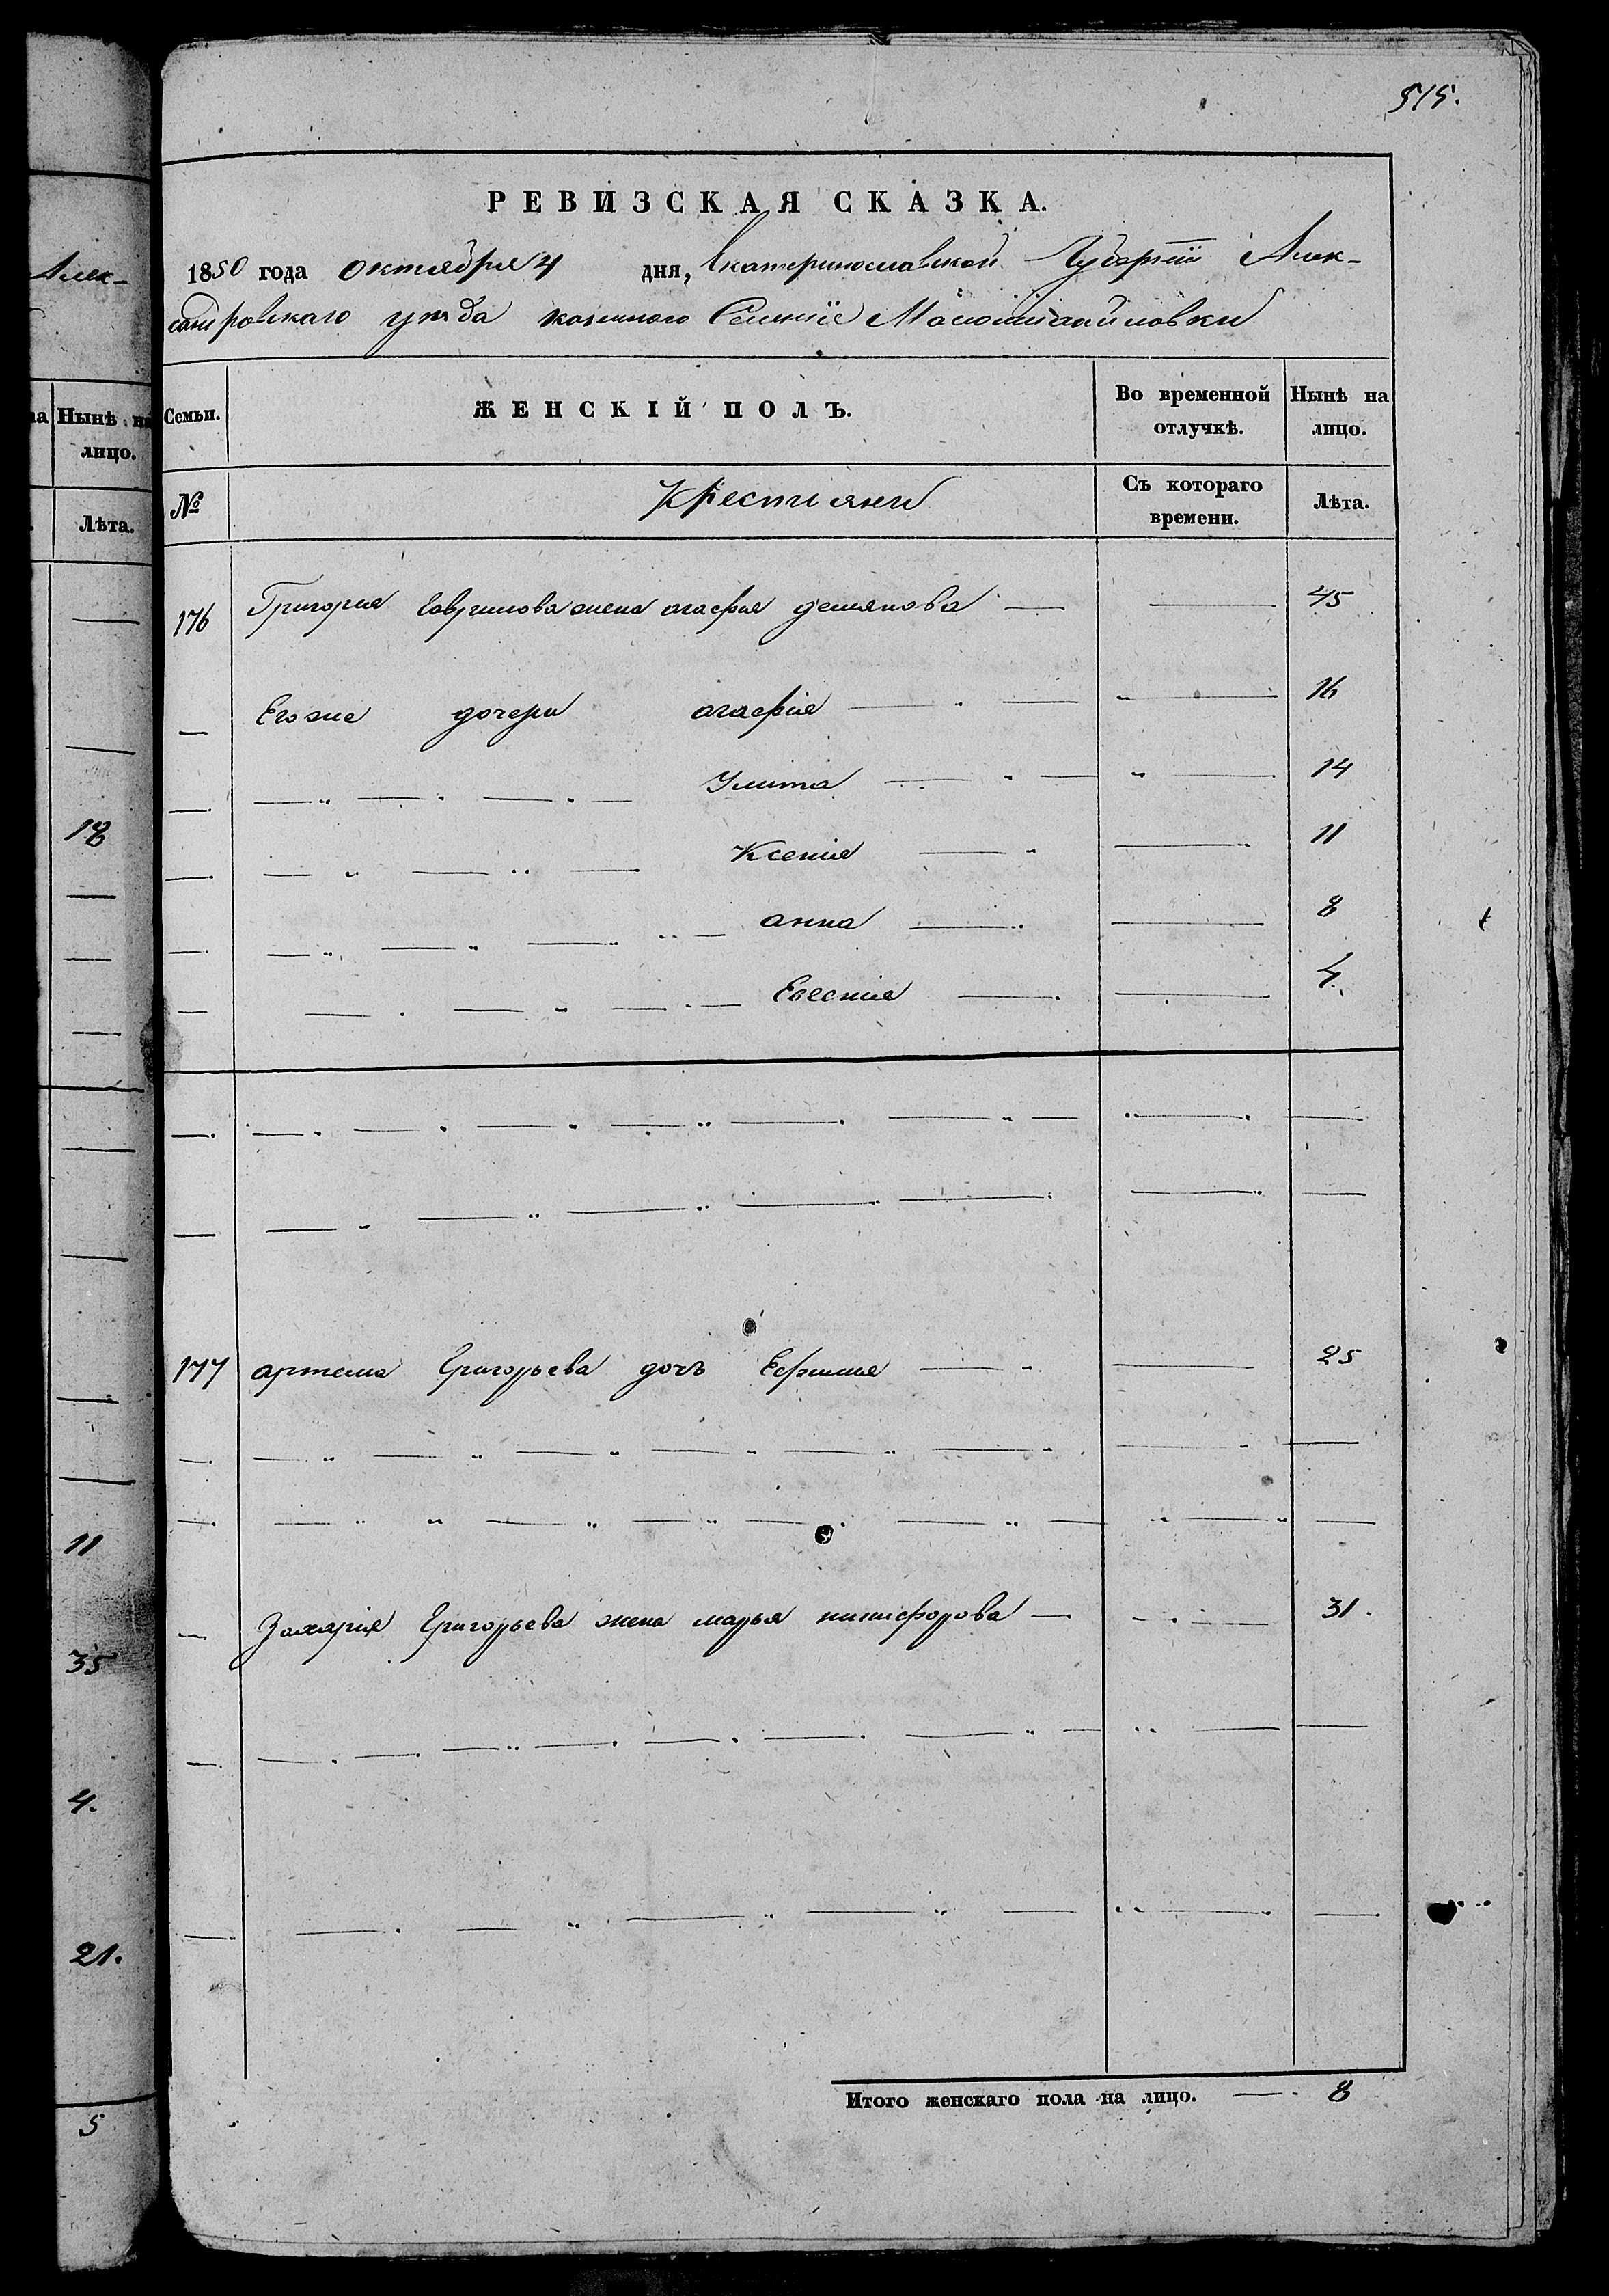 515.
РЕВИЗСКАЯ СКАЗКА.
1850 года октября 4 дня, Екатеринославской Губернїи Алек-
сандровскаго уѣзда казенного Селенїя Маломихайловки
Семьи. ЖЕНСКІЙ ПОЛЪ. Во временной отлучкѣ. Нынѣ на лицо.
№ Крестьяни Съ котораго времени. Лѣта.
176 Григория Гавриилова жена агафия демянова — — 45
— Егоже дочери агафия — — 16
— Улита — — 14
— Ксения — — 11
— анна — — 8
— Евгения — — 4.
177 артема Григорьева дочь Ефимия — — 25
— Захария Григорьева жена марья никифорова — — 31.
Итого женскаго пола на лицо. — 8
Алек-
на Нынѣ на
лицо.
Лѣта.
18
11
35
4.
21.
5